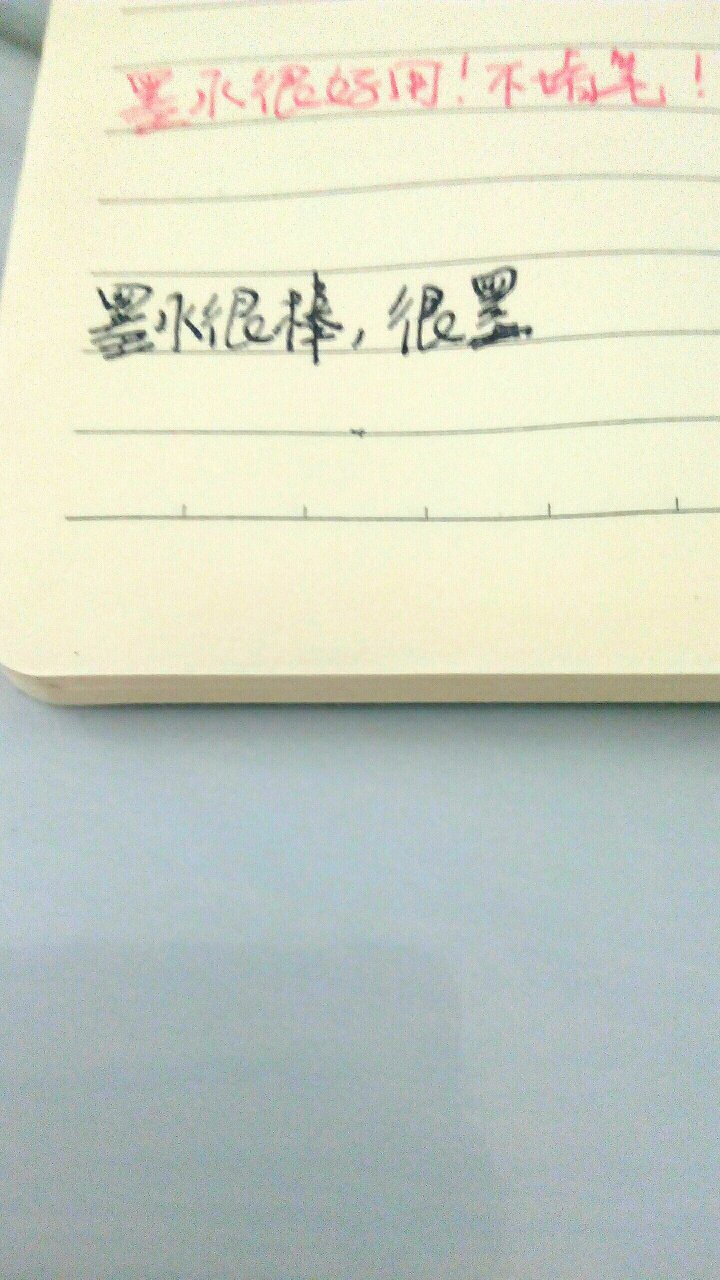 墨水很好用!不堵笔!
墨水很棒,很黑